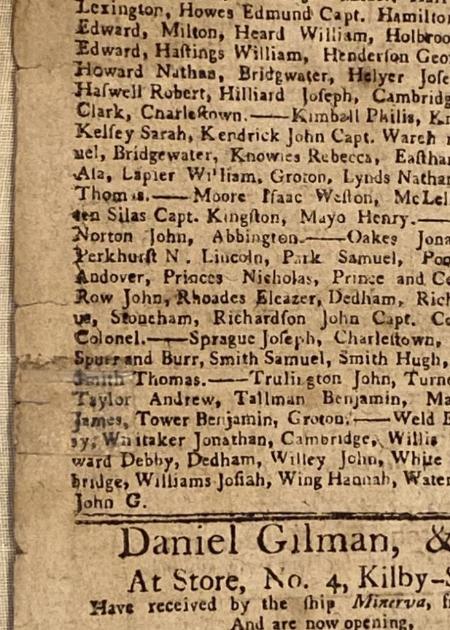 Lexington, Howes Edmund Capt. Hamilton
Edward, Milton, Heard William, Holbroo
Edward, Haſtings William, Henderſon Geo
Howard Nathan, Bridgwater, Helyer Joſe
Haſwell Robert, Hilliard Joſeph, Cambridg
Clark, Charleſtown.——Kimball Philis, Kn
Kelſey Sarah, Kendrick John Capt. Wareh
uel, Bridgewater, Knowles Rebecca, Eaſtha
Aſa, Lapier William, Groton, Lynds Nathan
Thomas.—— Moore Iſaac Weſton, McLel
ten Silas Capt. Kingſton, Mayo Henry.——
Norton John, Abbington.——Oakes Jona
Perkhurſt N. Lincoln, Park Samuel, Poo
Andover, Princes Nicholas, Prince and Co
Row John, Rhoades Eleazer, Dedham, Rich
us, Stoneham, Richardſon John Capt. Co
Colonel.——Sprague Joſeph, Charleſtown,
Spurr and Burr, Smith Samuel, Smith Hugh,
Smith Thomas.——Trulington John, Turne
Taylor Andrew, Tallman Benjamin, Ma
James, Tower Benjamin, Groton.——Weld E
sy, Whitaker Jonathan, Cambridge, Willis
ward Debby, Dedham, Willey John, White
bridge, Williams Joſiah, Wing Hannah, Water
John G.
Daniel Gilman, &
At Store, No. 4, Kilby-S
Have received by the ſhip Minerva, f
And are now opening,